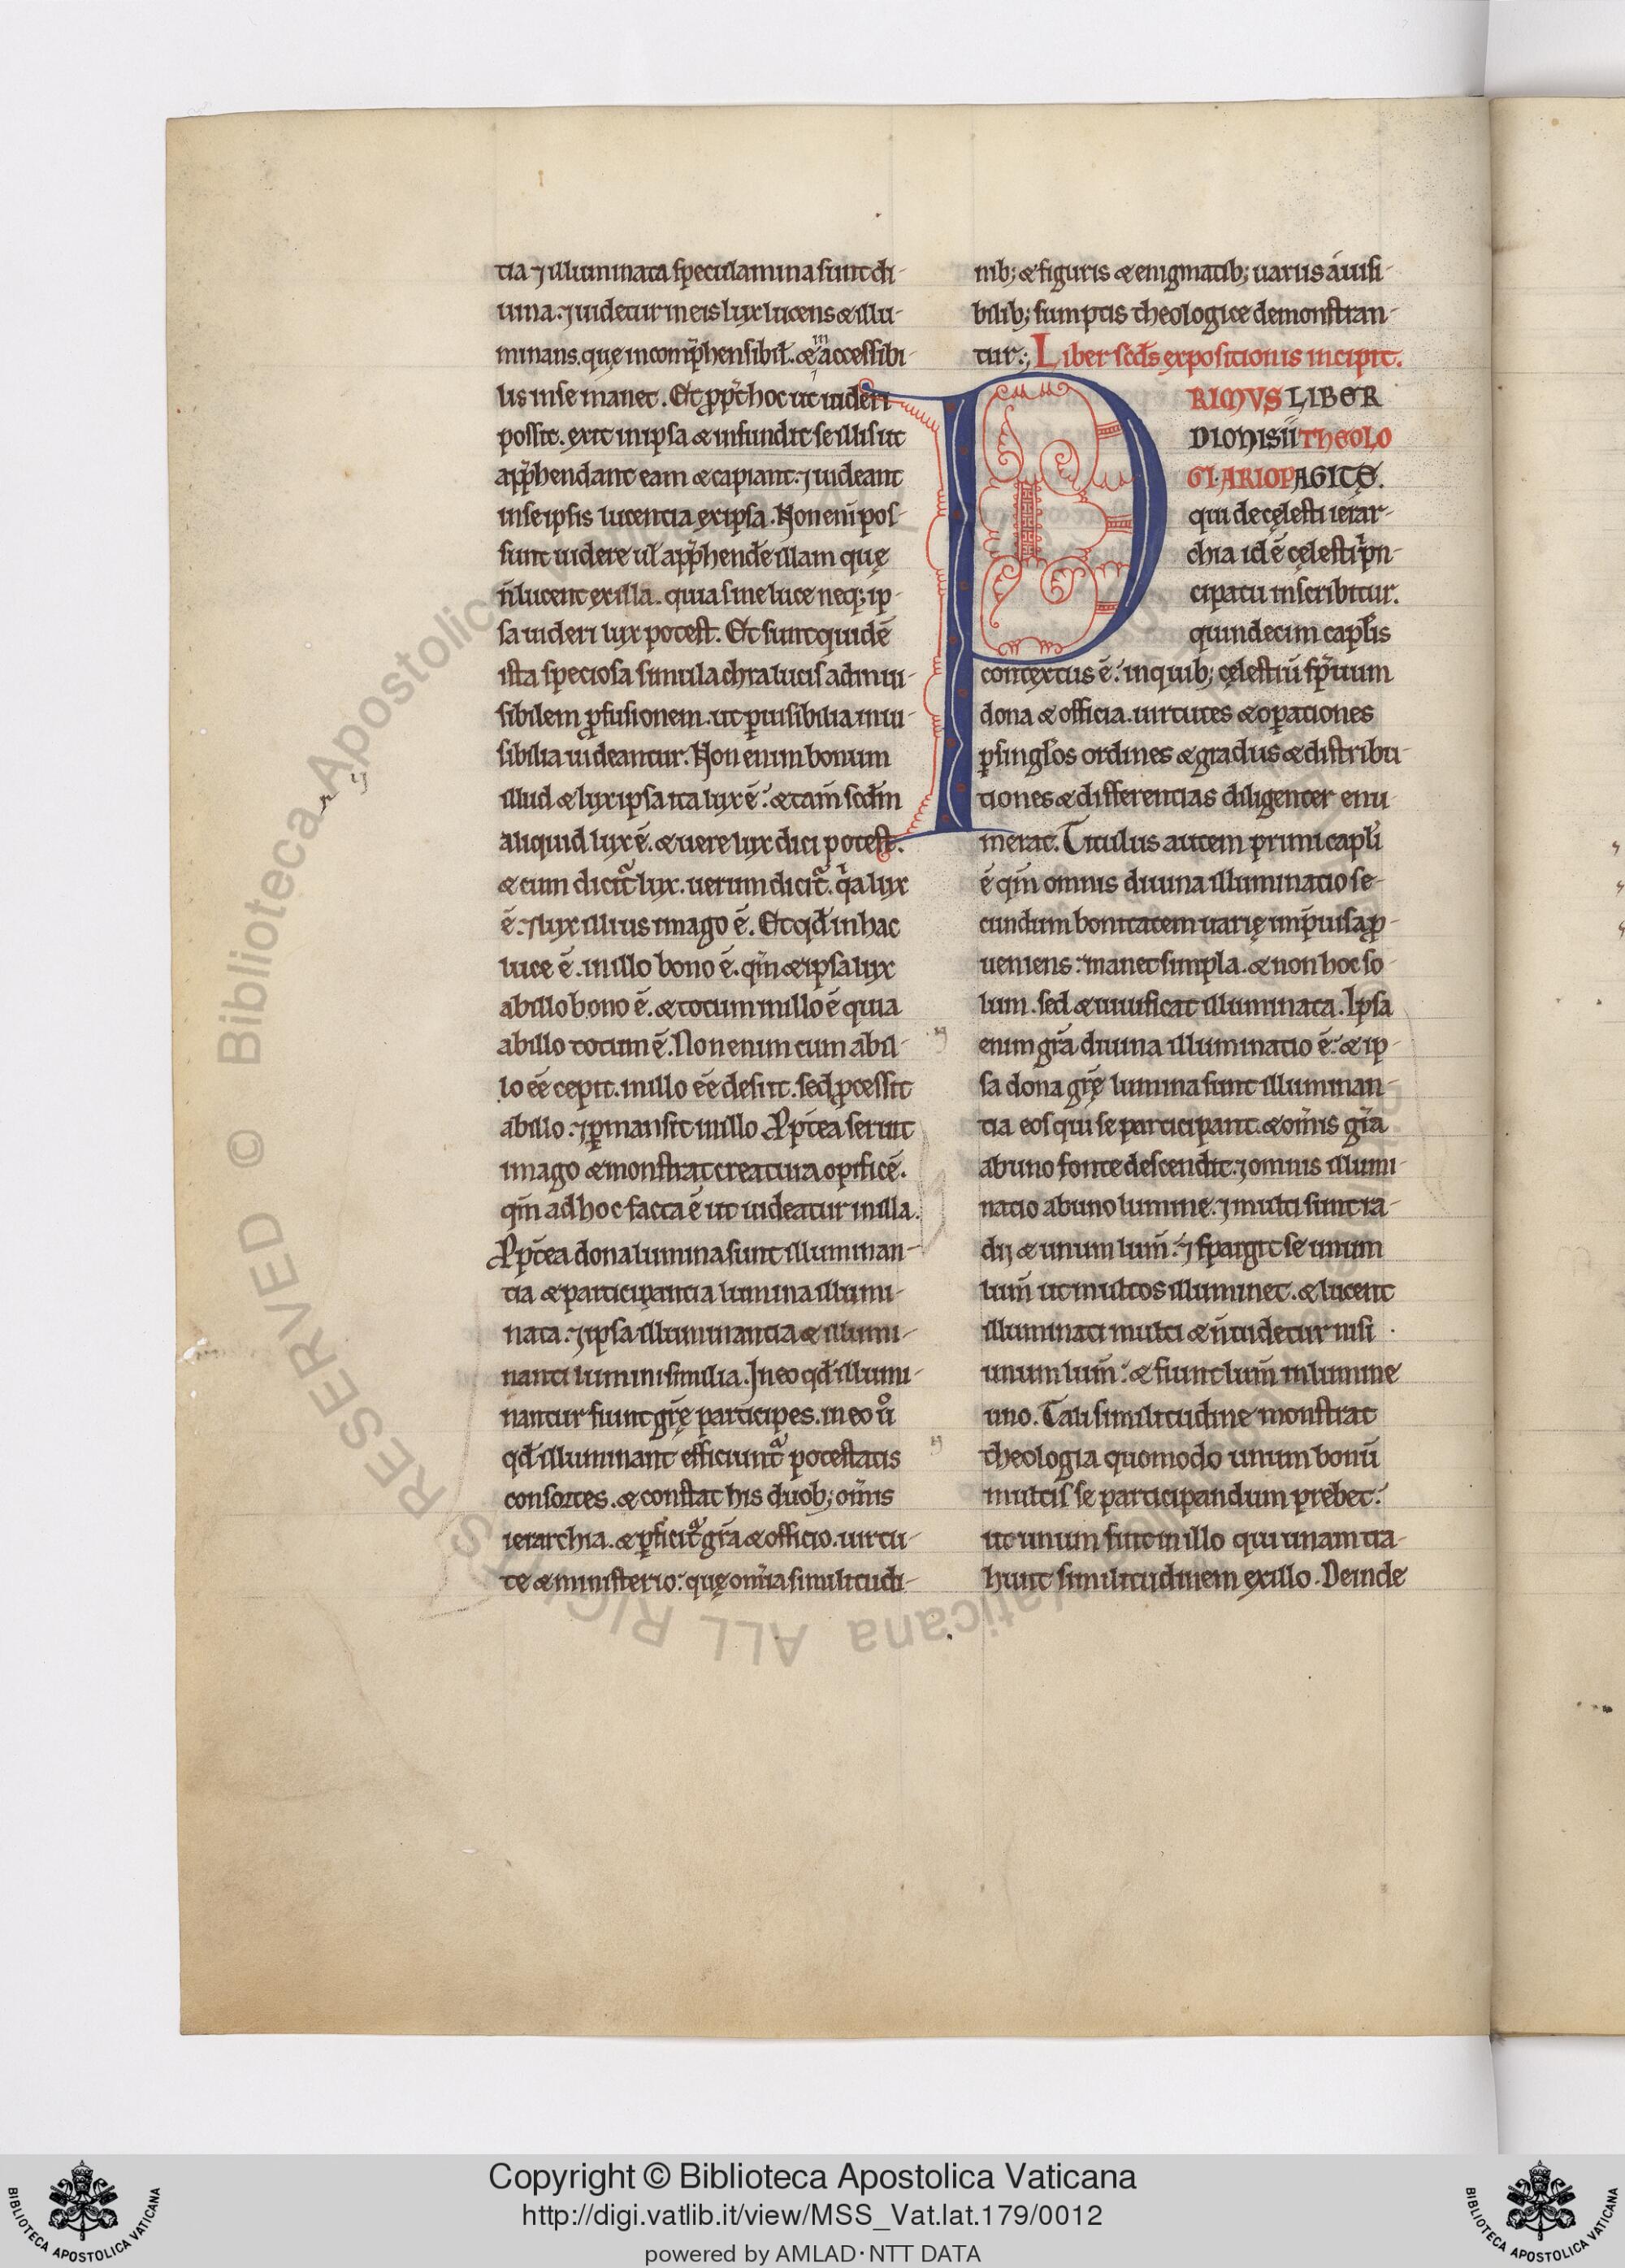 tia ⁊ illuminata speculamina sunt di-
uina. ⁊ uidetur in eis lux lucens & illu-
minans. quę incomp̃hensibił. & inaccessibi-
lis in se manet. Et ꝓpt̃ hoc ut uideri
possit. exit in ipsa & infundit se illis ut
app̃hendant eam & capiant. ⁊ uideant
in se ipsis lucentia ex ipsa. Non eni pos-
sunt uidere uł app̃hendẽ illam quę
ñ lucent ex illa. quia sine luce neq; ip-
sa uideri lux potest. Et sunt quidẽ
ista speciosa simulachra lucis ad inui-
sibilem ꝓfusionem. ut ꝑ uisibilia inui-
sibilia uideantur. Non enim bonum
illud & lux ipsa ita lux ẽ. & tam̃ scdm̃
aliquid lux ẽ. & uere lux dici potest.
& cum dicit̃ lux. uerum dicit̃. q̃a lux
ẽ. ⁊ lux illius imago ẽ. Et qđ in hac
luce ẽ. in illo bono ẽ. qm̃ & ipsa lux
ab illo bono ẽ. & totum in illo ẽ quia
ab illo totum ẽ. Non enim cum ab il-
lo eẽ cepit. in illo eẽ desiit. sed ꝓcessit
ab illo. ⁊ ꝑmansit in illo. Ꝓpt̃ea seruit
imago & monstrat creatura opificẽ.
qm̃ ad hoc facta ẽ ut uideatur in illa.
Ꝓpt̃ea dona lumina sunt illuminan-
tia & participantia lumina illumi-
nata. ⁊ ipsa illuminantia & illumi-
nanti lumini similia. In eo qđ illumi-
nantur fiunt grę̃ participes. in eo ů
qđ illuminant efficiunt̃ potestatis
consortes. & constat his duob; om̃is
ierarchia. & ꝑficit̃ gr̃a & officio. uirtu-
te & ministerio. quę om̃ia similitudi-
nib; & figuris & enigmatib; uariis a uisi-
bilib; sumptis theologice demonstran-
tur. Liber scđs expositionis incipit.
PRIMVS LIBER
DIONISII THEOLO
GI. ARIOPAGITĘ.
qui de cęlesti ierar-
chia id ẽ cęlesti p̃n-
cipatu inscribitur.
quindecim capłis
contextus ẽ. in quib; cęlestiũ sp̃ituum
dona & officia. uirtutes & oꝑationes
ꝑ singłos ordines & gradus & distribu-
tiones & differentias diligenter enu-
merat. Titulus autem primi capłi
ẽ qm̃ omnis diuina illuminatio se-
cundum bonitatem uarię in p̃uisa ꝓ-
ueniens. manet simpla. & non hoc so-
lum. sed & uiuificat illuminata. Ipsa
enim gr̃a diuina illuminatio ẽ. & ip-
sa dona grę̃ lumina sunt illuminan-
tia eos qui se participant. & om̃is gr̃a
ab uno fonte descendit. ⁊ omnis illumi-
natio ab uno lumine. ⁊ multi sunt ra-
dij & unum lum̃. ⁊ spargit se unum
lum̃ ut multos illuminet. & lucent
illuminati multi & ñ uidetur nisi
unum lum̃. & fiunt lum̃ in lumine
uno. Tali similitudine monstrat
theologia quomodo unum bonũ
multis se participandum prebet.
ut unum sint in illo qui unam tra-
hunt similitudinem ex illo. Deinde
Copyright © Biblioteca Apostolica Vaticana
http://digi.vatlib.it/view/MSS_Vat.lat.179/0012
powered by AMLAD·NTT DATA
BIBLIOTECA APOSTOLICA VATICANA
BIBLIOTECA APOSTOLICA VATICANA